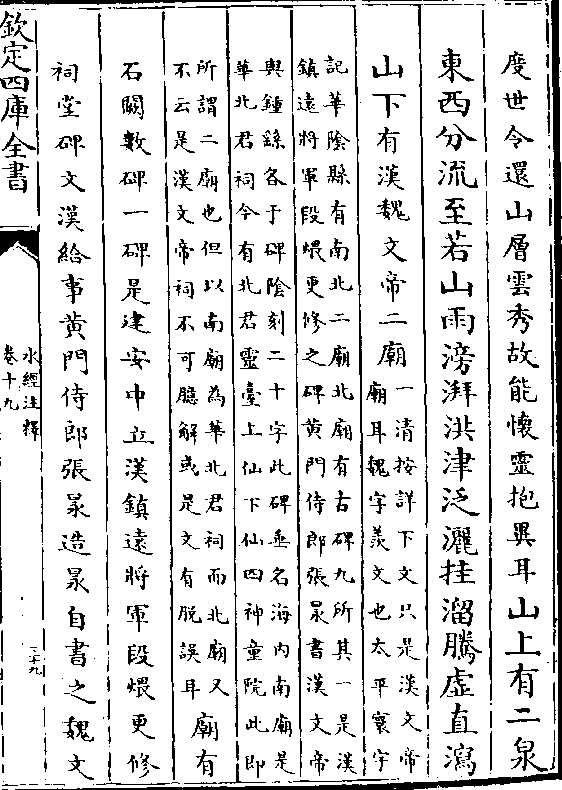 度世令還山層雲秀故能懷靈抱異耳山上有二泉
東西分流至若山雨滂湃洪津泛灑挂溜騰虛直瀉
山下有漢魏文帝二廟一清按詳下文只是漢文帝
廟耳魏字羨文也太平寰宇
記華陰縣有南北二廟北廟有古碑九所其一是漢
鎮遠將軍段煨更修之碑黄門侍郎張㫤書漢文帝
與鍾繇各于碑陰刻二十字此碑垂名海内南廟是
華北君祠今有北君靈臺上仙下仙四神童院此即
所謂二廟也但以南廟為華北君祠而北廟又
不云是漢文帝祠不可臆解或是文有脱誤耳廟有
石闕數碑一碑是建安中立漢鎮遠將軍段煨更修
祠堂碑文漢給事黄門侍郎張㫤造㫤自書之魏文
欽定四庫全書
水經注釋
卷十九
二十九